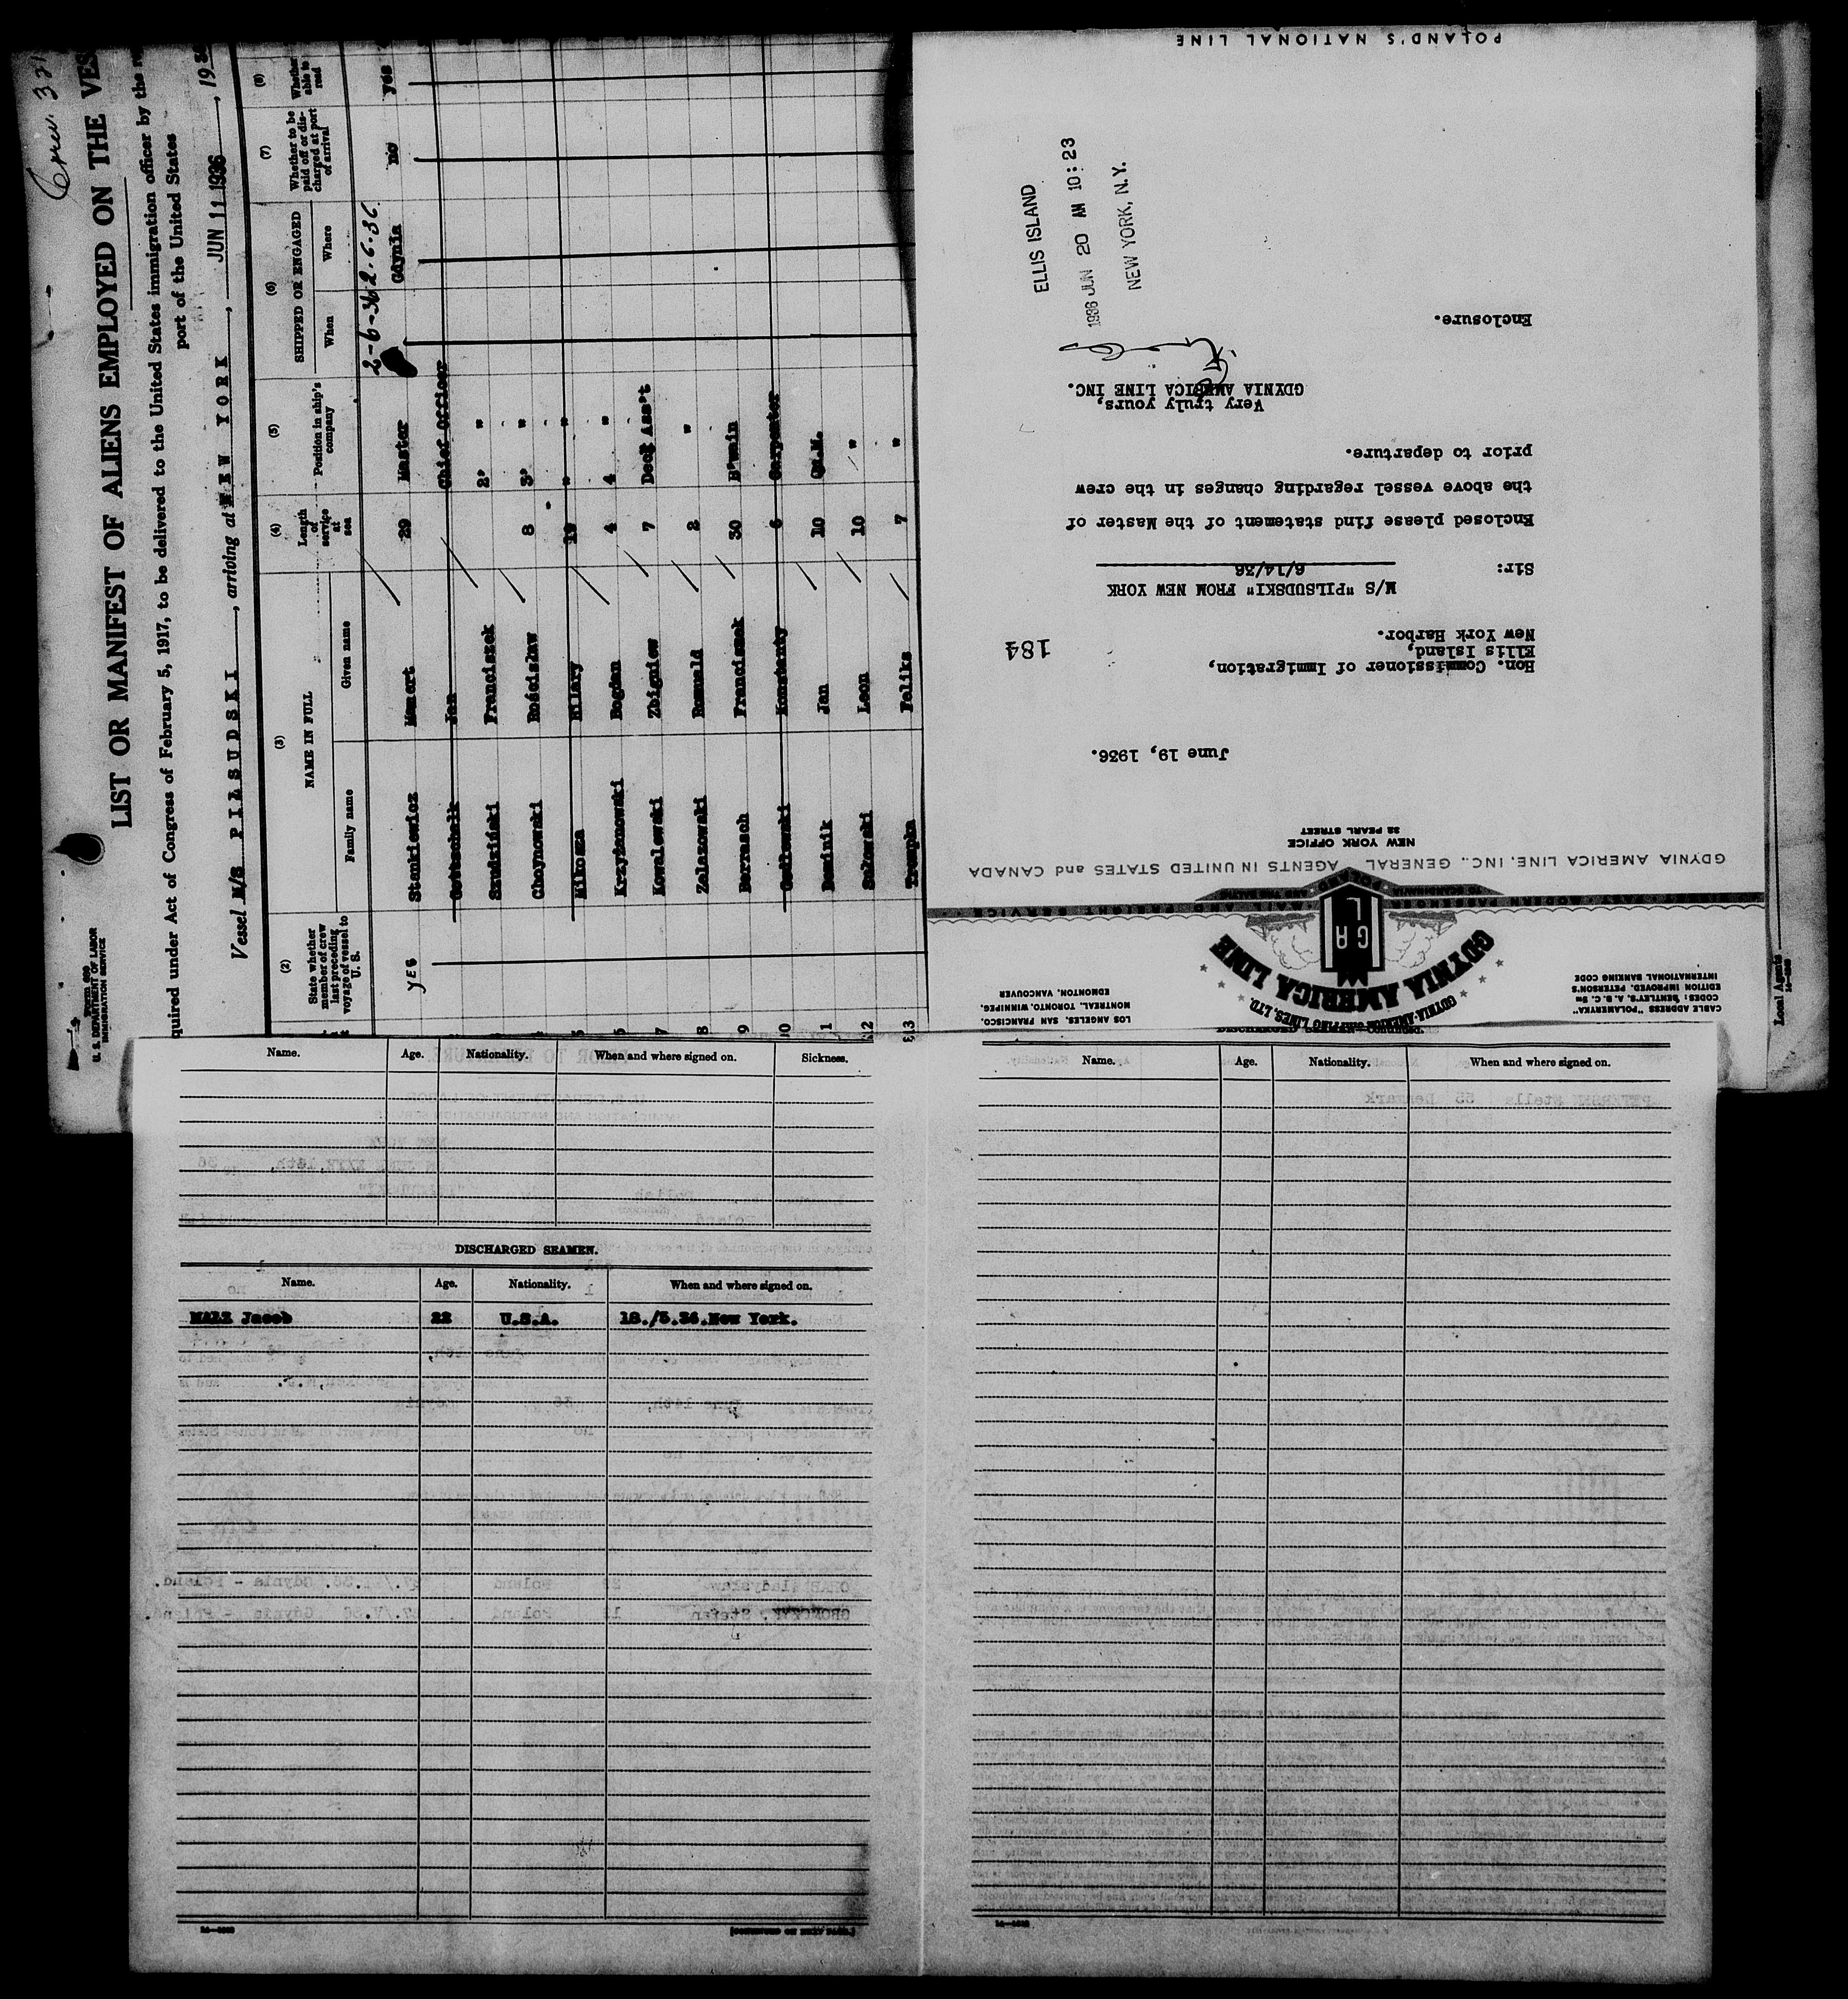 Crew.
Form 689
U. S. DEPARTMENT OF LABOR
IMMIGRATION SERVICE
LIST OR MANIFEST OF ALIENS EMPLOYED ON THE VES
quired under Act of Congress of February 5, 1917, to be delivered to the United States immigration officer by the
port of the United States
Vessel M/S PIŁSUDSKI, arriving at NEW YORK, JUN 11 1936, 19
(2) (3) (4) (5) (6) (7) (8)
State whether member of crew last preceding voyage of vessel to U. S.
NAME IN FULL
Family name Given name
Length of service at sea
Position in ship's company
SHIPPED OR ENGAGED
When Where
Whether to be paid off or discharged at port of arrival
Whether able to read
2-6-36 2.6.36
YES Stankiewicz Mamert 29 Master Gdynia no yes
Gottschalk Jan Chief Officer
Szudziński Franciszek 2' "
Choynowski Rościsław 8 3' "
5 Mikosza Hilary 19 " "
6 Krzyżanowski Bogdan 4 4 "
7 Kowalewski Zbigniew 7 Deck Ass't
8 Zelazowski Romuald 2 "
9 Berrasch Franciszek 30 B'wain
10 Konstanty 6 Carpenter
11 Dominik Jan 10 Qu.M.
12 Sulowski Leon 10 "
13 Trempka Feliks 7 "
CABLE ADDRESS "POLAMERYKA"
CODES: BENTLEY'S, A. B. C. 5TH
EDITION IMPROVED, PETERSON'S
INTERNATIONAL BANKING CODE
GDYNIA-AMERICA SHIPPING LINES, LTD.
GDYNIA AMERICA LINE
GAL
LOS ANGELES, SAN FRANCISCO,
MONTREAL, TORONTO, WINNIPEG,
EDMONTON, VANCOUVER
FAST MODERN PASSENGER MAIL AND FREIGHT SERVICE
TO SCANDINAVIA POLAND AND THE BALTIC
GDYNIA AMERICA LINE, INC., GENERAL AGENTS IN UNITED STATES and CANADA
NEW YORK OFFICE
32 PEARL STREET
June 19, 1936.
Hon. Commissioner of Immigration,
Ellis Island,
New York Harbor.
184
M/S "PILSUDSKI" FROM NEW YORK
6/14/36
Sir:
Enclosed please find statement of the Master of
the above vessel regarding changes in the crew
prior to departure.
Very truly yours,
GDYNIA AMERICA LINE INC.
Enclosure.
ELLIS ISLAND
1936 JUN 20 AM 10:23
NEW YORK, N.Y.
POLAND'S NATIONAL LINE
Local Agents
Name. Age. Nationality. When and where signed on. Sickness.
DISCHARGED SEAMEN.
Name. Age. Nationality. When and where signed on.
MALZ Jacob 22 U.S.A. 18./5.36.New York.
14—1243
[CONTINUED ON NEXT PAGE.]
DISCHARGED SEAMEN—Continued.
Name. Age. Nationality. When and where signed on.